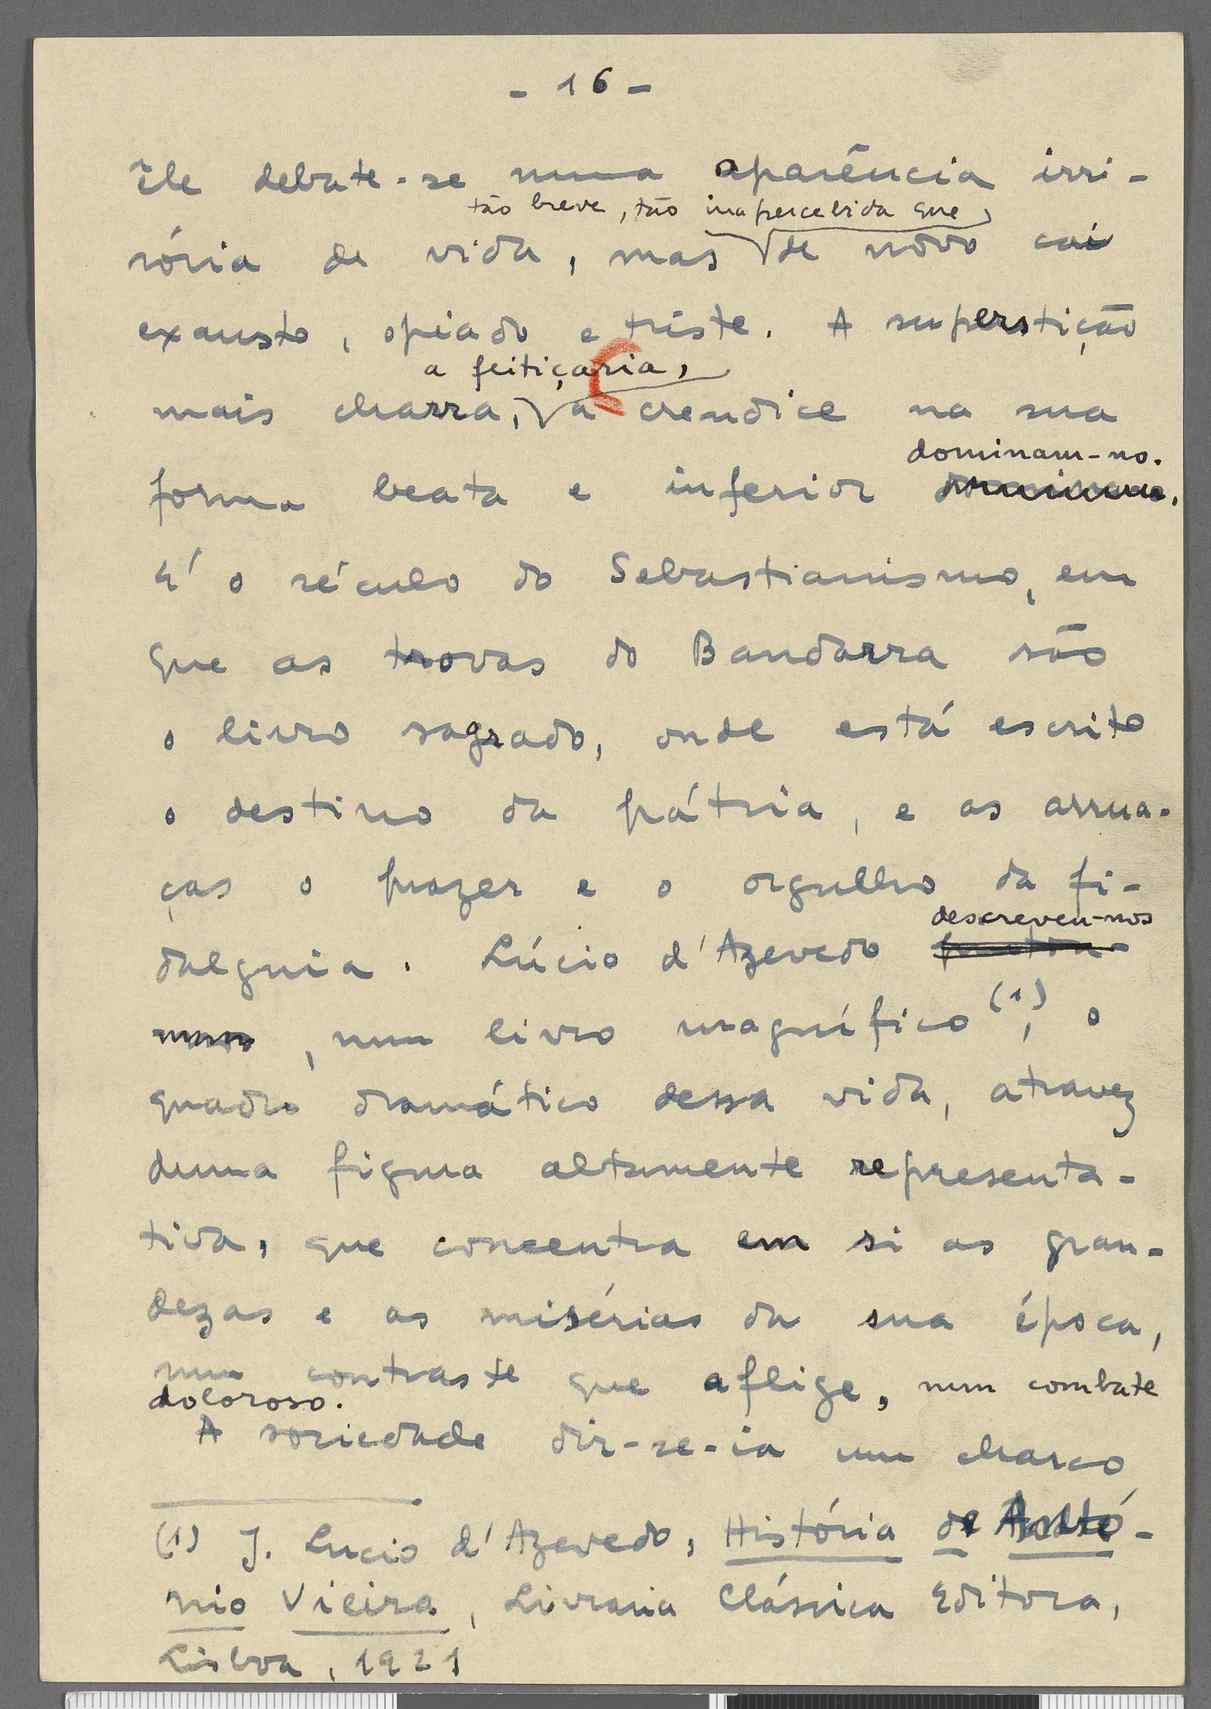 - 16 -
êle debate-se numa aparência irri-
tão breve, tão inapercebida que
sória de vida, mas de nôvo cai
exausto, opiado e triste. A superstição
a feitiçaria,
mais charra, a crendice na sua
dominam-no.
forma beata e inferior dominam.
E' o século do Sebastianismo, em
que as trovas do Bandarra são
o livro sagrado, onde está escrito
o destino da pátria, e as arrua-
ças o prazer e o orgulho da fi-
descreveu-nos
dalguia. Lúcio d'Azevedo
, num livro magnífico (1), o
quadro dramático dessa vida, atravez
duma figura altamente representa-
tiva, que concentra em si as gran-
dezas e as misérias da sua época,
num contraste que aflige, num combate
doloroso.
A sociedade dir-se-ia um charco
(1) J. Lucio d'Azevedo, História de Antó-
nio Vieira, Livraria Clássica Editora,
Lisboa, 1921